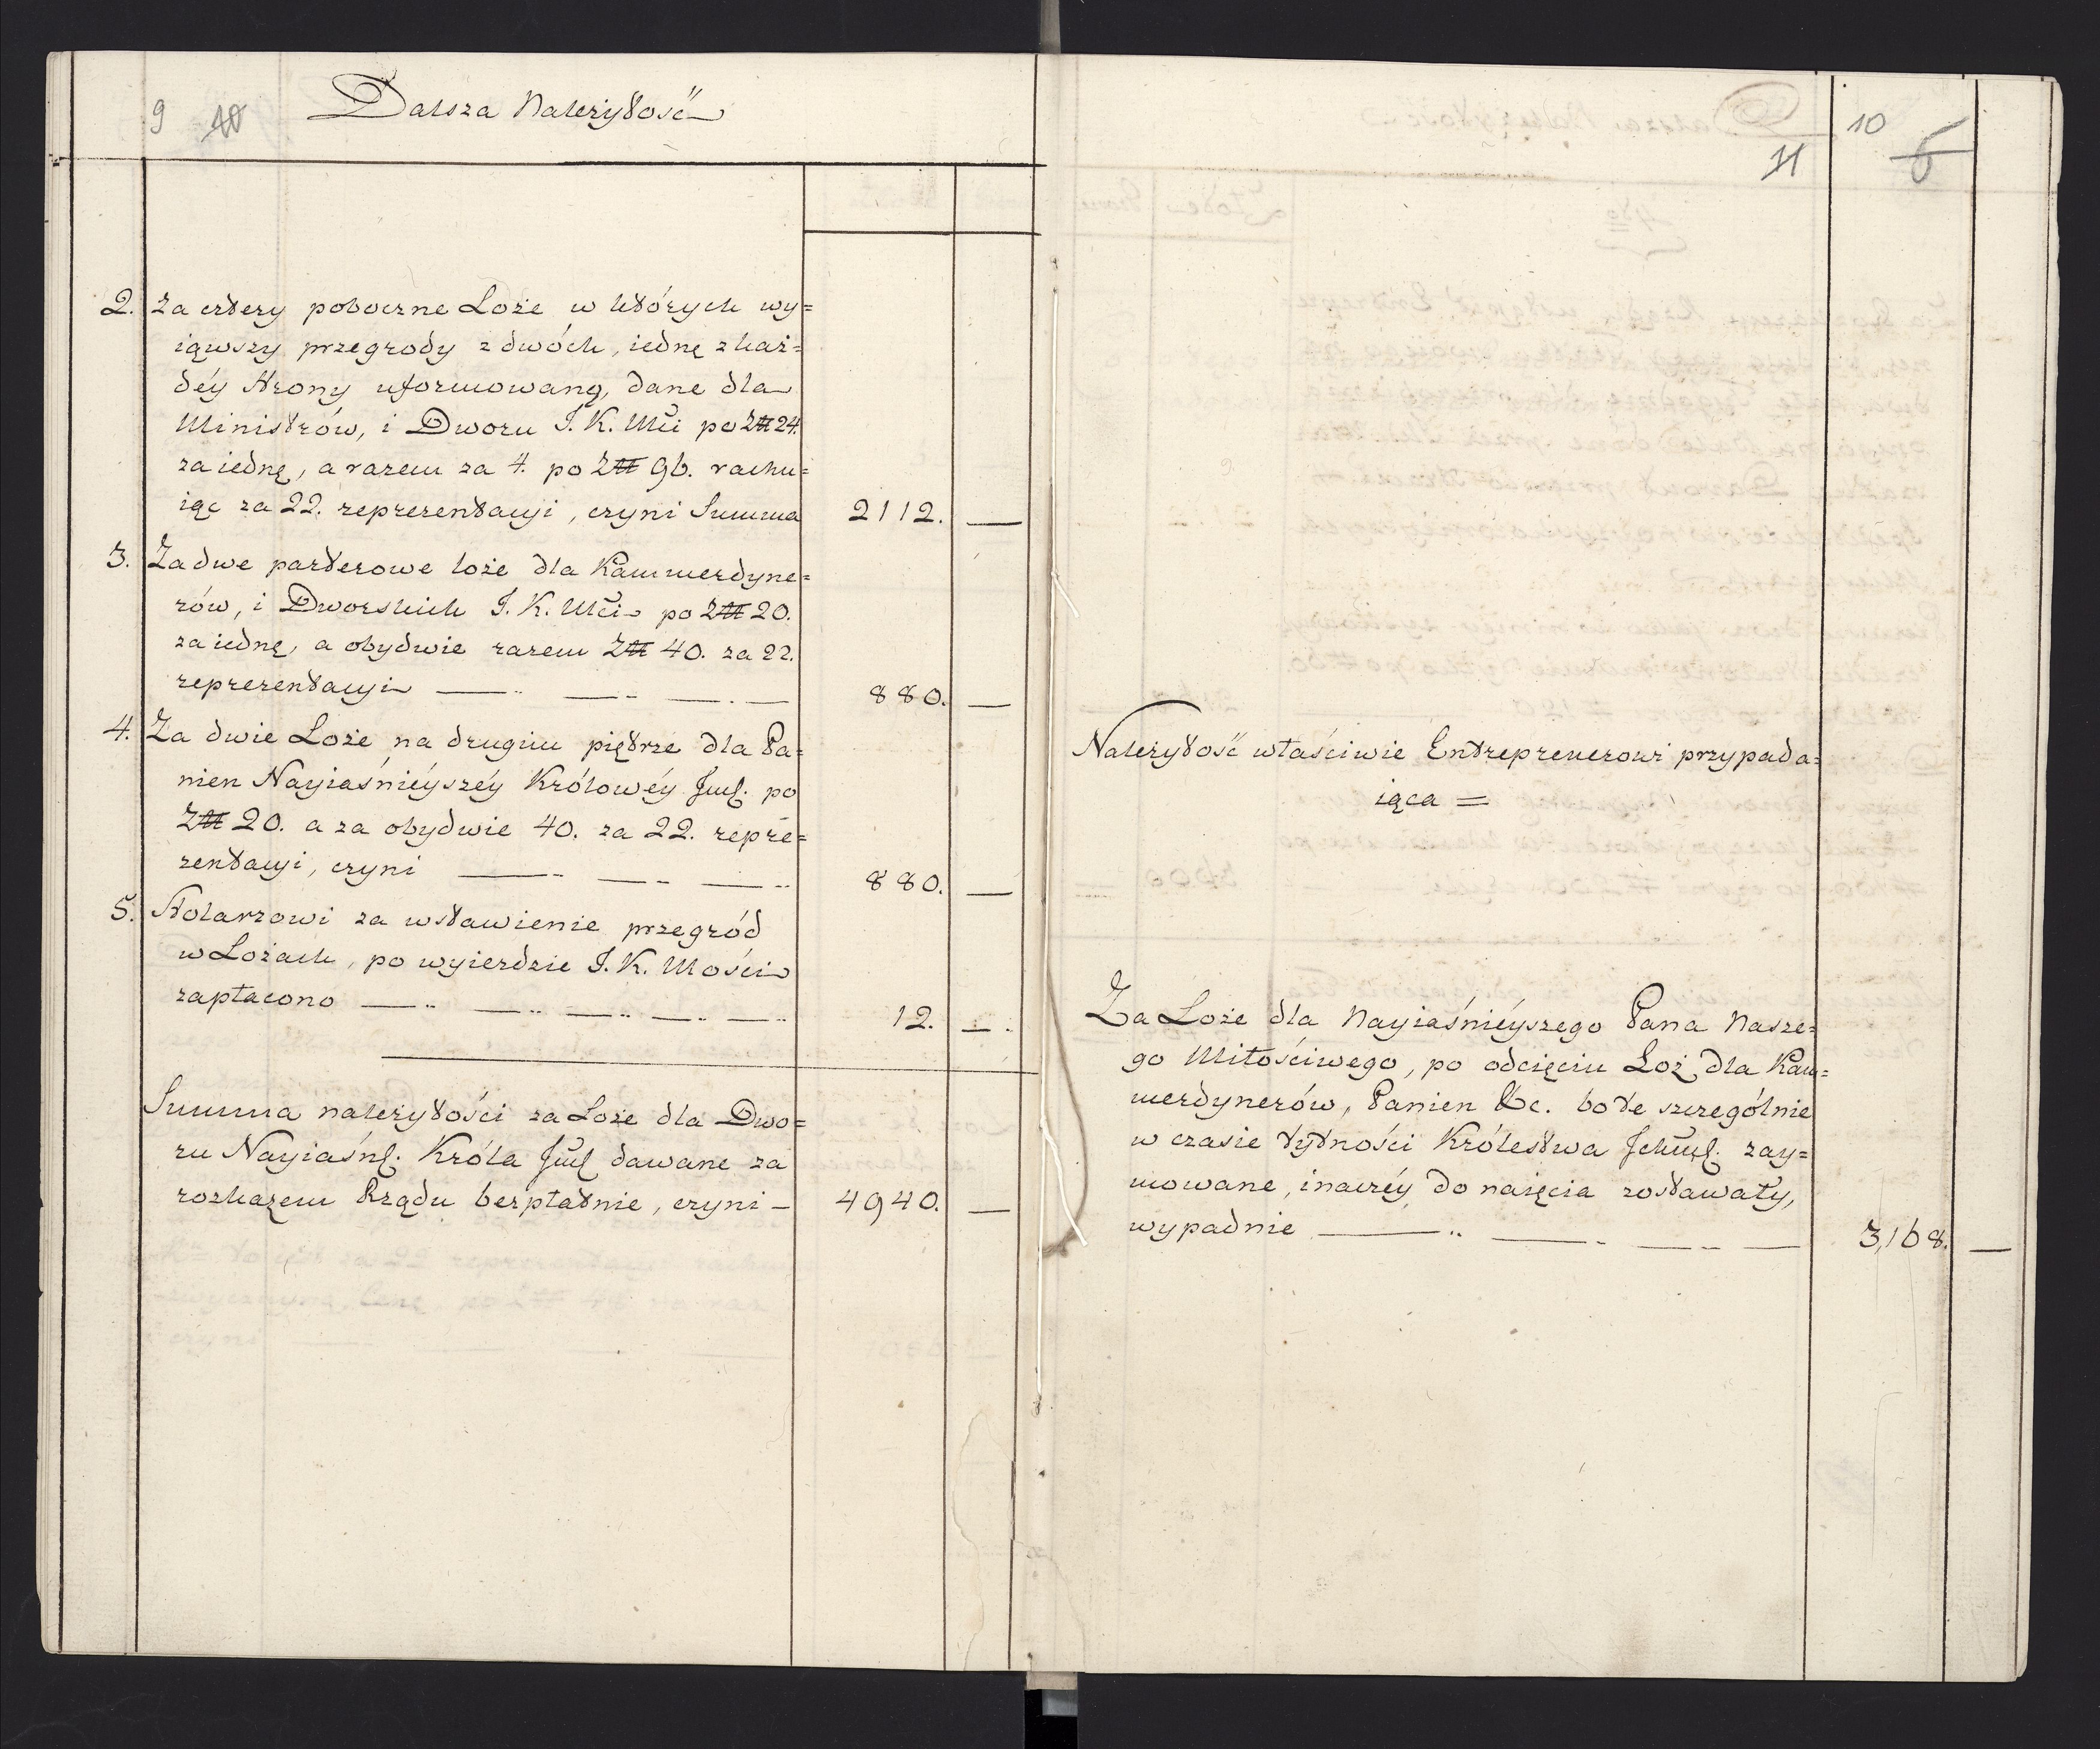 9 10
Dalsza Należytość
2. Za cztery poboczne Loże w których wy=
iąwszy przegrody z dwóch, iednę z każ=
déy strony uformowaną, dane dla
Ministrów, i Dworu J. K. Mći po Z## 24.
za iednę, a razem za 4. po Z## 96. rachu=
iąc za 22. reprezentacyi, czyni Summa 2112. —
3. Za dwe parterowe loże dla Kammerdyne=
rów, i Dworskich J. K. Mći po Z## 20.
za iednę, a obydwie razem Z## 40. za 22.
reprezentacyi — — — — 880. —
4. Za dwie Loże na drugim piętrze dla Pa=
nien Nayiaśniéyszéy Królowéy Jmć. po
Z## 20. a za obydwie 40. za 22. repre=
zentacyi, czyni — — — 880. —
5. Stolarzowi za wstawienie przegród
w Lożach, po wyieździe J. K. Mości
zapłacono — — — — — 12. —
Summa należytości za Loże dla Dwo=
ru Nayiaśnź. Króla Jmć dawane za
rozkazem Rządu bezpłatnie, czyni — 4940. —
10
11 6
Należytość właściwie Entreprenerowi przypada=
iąca =
Za Loże dla Nayiaśniéyszego Pana Nasze=
go Miłościwego, po odcięciu Loż dla Kam=
merdynerów, Panien &c. bo te szczególnie
w czasie bytności Królestwa Jchmć. zay=
mowane, inaczéy do naięcia zostawały,
wypadnie — — — — 3,168. —